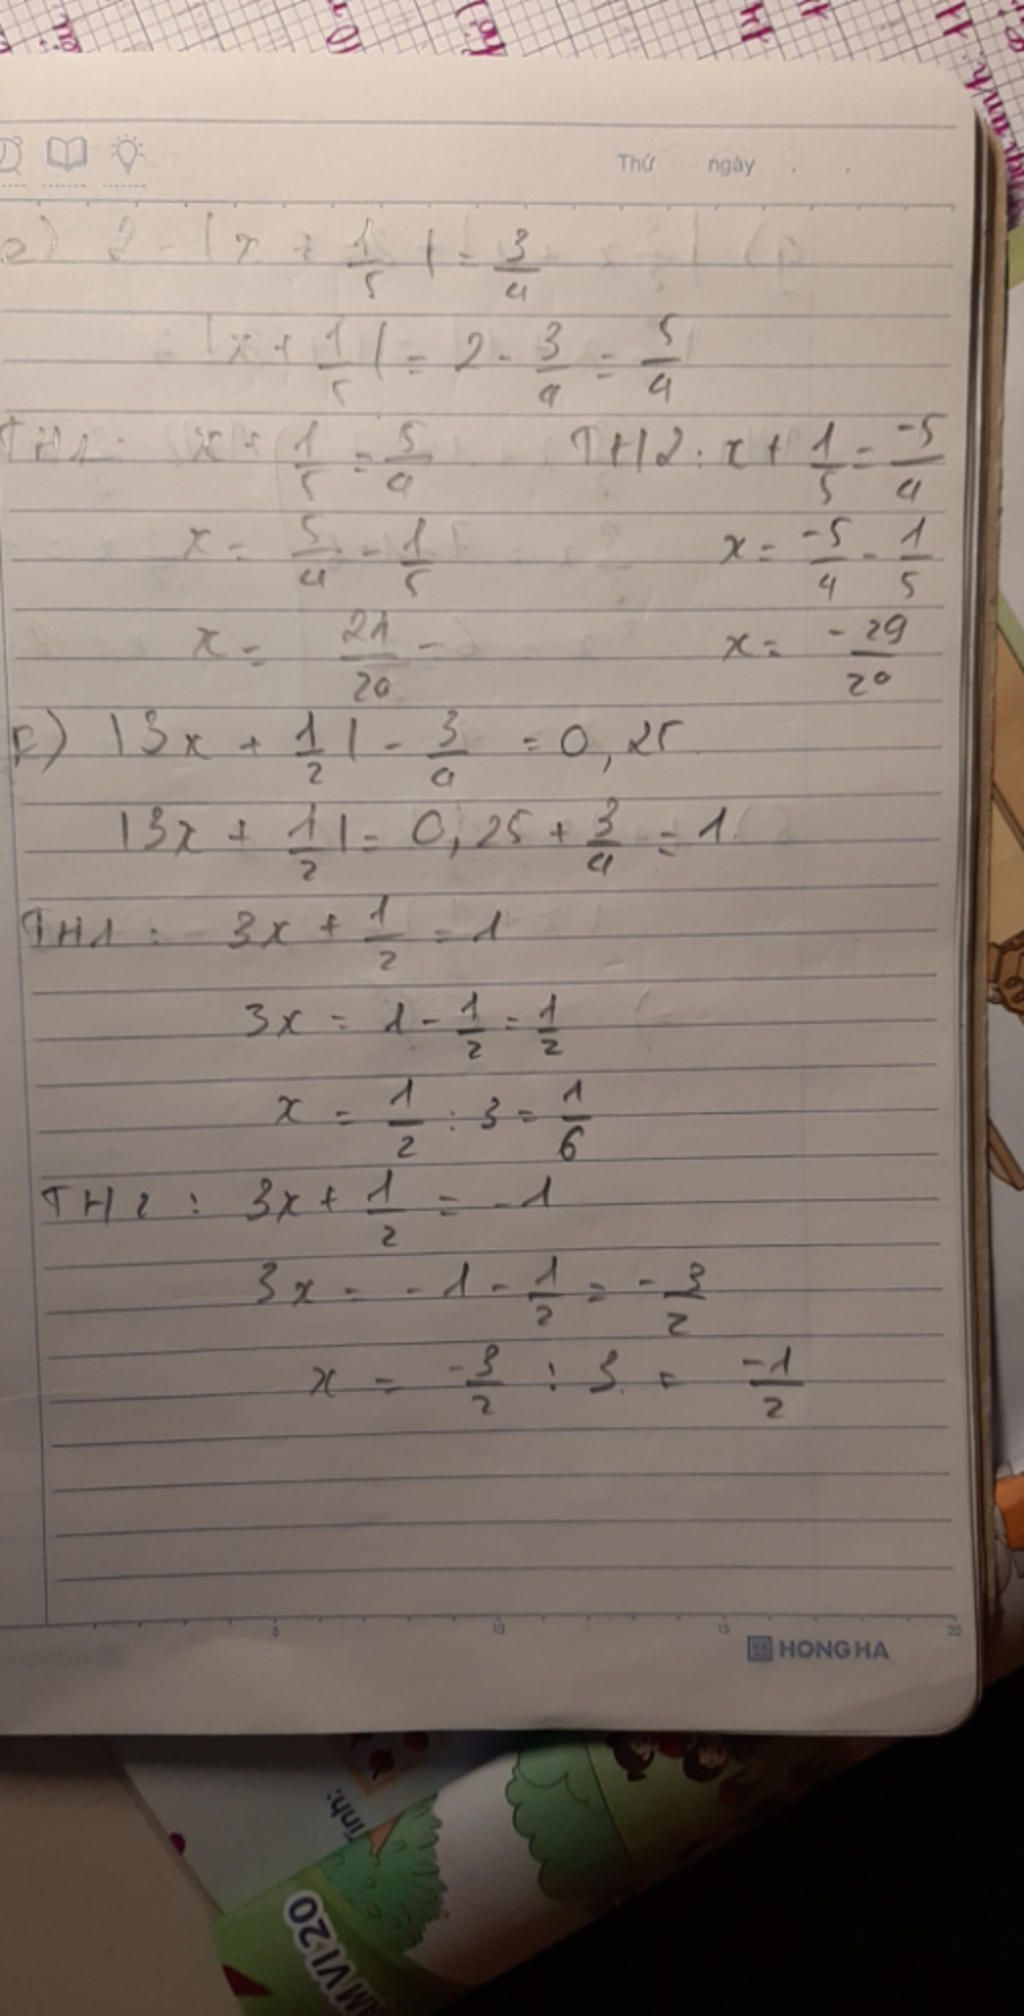 Thứ ngày
e) 2 - |x + 1/5| = 3/4
|x + 1/5| = 2 - 3/4 = 5/4
TH1: x + 1/5 = 5/4 TH2: x + 1/5 = -5/4
x = 5/4 - 1/5 x = -5/4 - 1/5
x = 21/20 x = -29/20
F) |3x + 1/2| - 3/4 = 0,25
|3x + 1/2| = 0,25 + 3/4 = 1
TH1: 3x + 1/2 = 1
3x = 1 - 1/2 = 1/2
x = 1/2 : 3 = 1/6
TH2: 3x + 1/2 = -1
3x = -1 - 1/2 = -3/2
x = -3/2 : 3 = -1/2
5 10 15 20
HONG HA